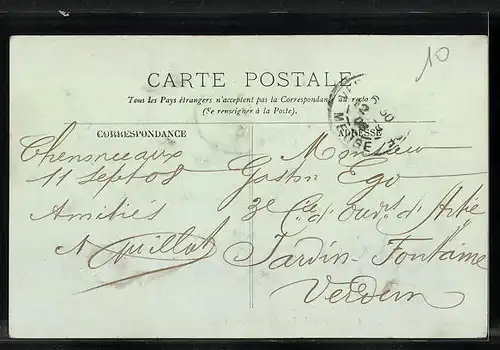 10
CARTE POSTALE
Tous les Pays étrangers n'acceptent pas la Correspondance au recto
(Se renseigner à la Poste).
CORRESPONDANCE
Chenonceaux
11 Sept 08
Amitiés
Guillot
ADRESSE
Monsieur
Gaston Ego
3e Cie d'Ouvrs d'Artie
Jardin-Fontaine
Verdun
MEUSE